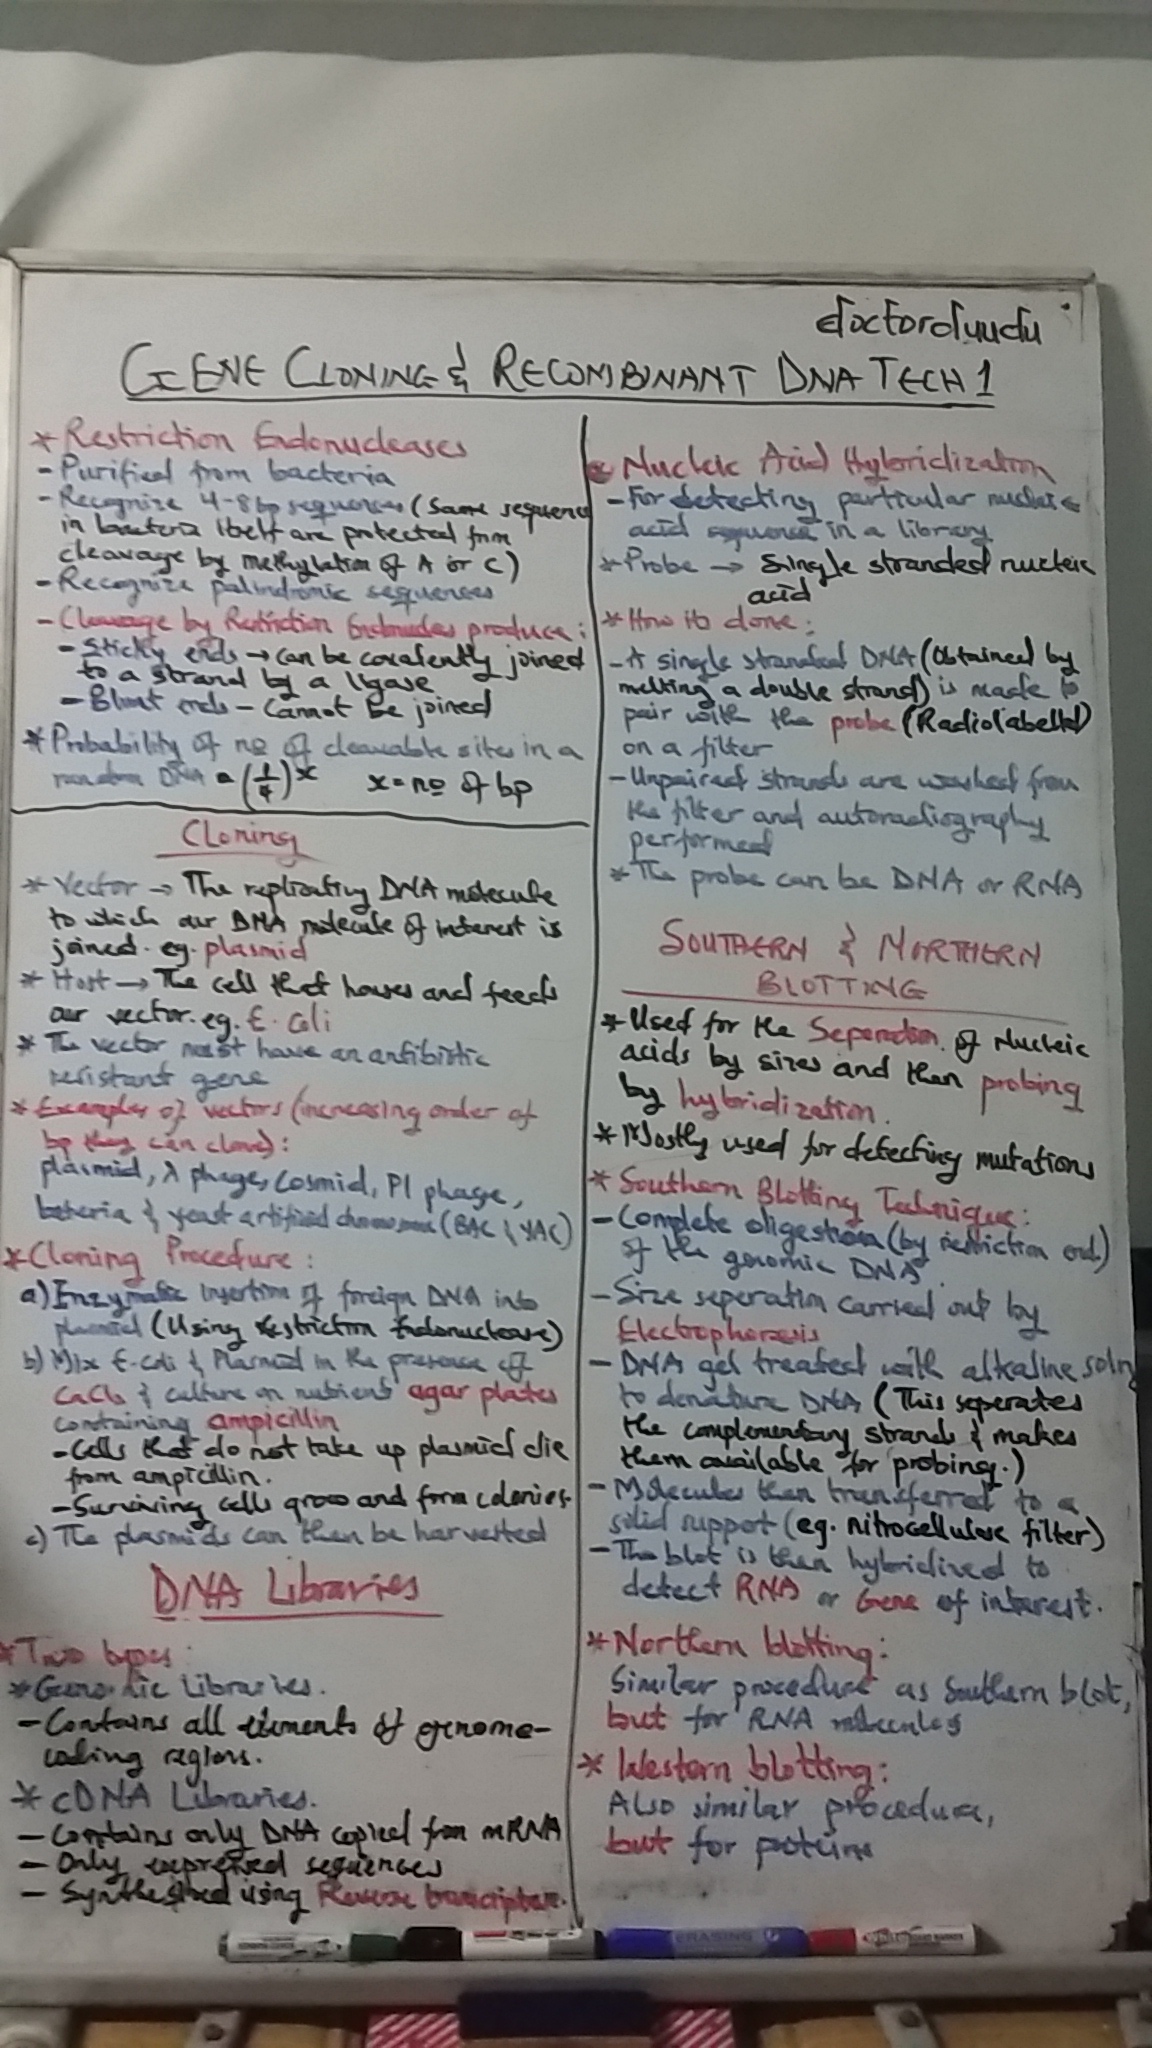 doctordudu
GENE CLONING & RECOMBINANT DNA TECH 1
* Restriction Endonucleases
- Purified from bacteria
- Recognize 4-8bp sequences (Same sequence
in bacteria itself are protected from
cleavage by methylation of A or C)
- Recognize palindromic sequences
- Cleavage by Restriction Endonucleases produce:
- Sticky ends → can be covalently joined
to a strand by a ligase
- Blunt ends - Cannot be joined
* Probability of no of cleavable sites in a
random DNA = (1/4)^x x = no of bp
Cloning
* Vector → The replicating DNA molecule
to which our DNA molecule of interest is
joined. eg. plasmid
* Host → The cell that houses and feeds
our vector. eg. E. Coli
* The vector must have an antibiotic
resistant gene
* Examples of vectors (increasing order of
bp they can clone):
plasmid, λ phage, Cosmid, P1 phage,
bacteria & yeast artificial chromosome (BAC & YAC)
* Cloning Procedure:
a) Enzymatic insertion of foreign DNA into
plasmid (Using restriction Endonuclease)
b) Mix E.coli & Plasmid in the presence of
CaCl2 & culture on nutrient agar plates
containing ampicillin
- Cells that do not take up plasmid die
from ampicillin.
- Surviving cells grow and form colonies.
c) The plasmids can then be harvested
DNA Libraries
* Two types:
* Genomic Libraries.
- Contains all elements of genome -
coding regions.
* cDNA Libraries.
- Contains only DNA copied from mRNA
- Only expressed sequences
- Synthesized using Reverse transcriptase.
* Nucleic Acid Hybridization
- For detecting particular nucleic
acid sequence in a library
* Probe → Single stranded nucleic
acid
* How its done:
- A single stranded DNA (Obtained by
melting a double strand) is made to
pair with the probe (Radiolabelled)
on a filter
- Unpaired strands are washed from
the filter and autoradiography
performed
* The probe can be DNA or RNA
SOUTHERN & NORTHERN
BLOTTING
* Used for the Seperation of Nucleic
acids by sizes and then probing
by hybridization.
* Mostly used for detecting mutations
* Southern Blotting Technique:
- Complete digestion (by restriction end)
of the genomic DNA
- Size seperation carried out by
Electrophoresis
- DNA get treated with alkaline soln
to denature DNA (This seperates
the complementary strands & makes
them available for probing.)
- Molecules then transferred to a
solid support (eg. nitrocellulose filter)
- The blot is then hybridized to
detect RNA or Gene of interest.
* Northern blotting:
Similar procedure as Southern blot,
but for RNA molecules
* Western blotting:
Also similar procedure,
but for proteins